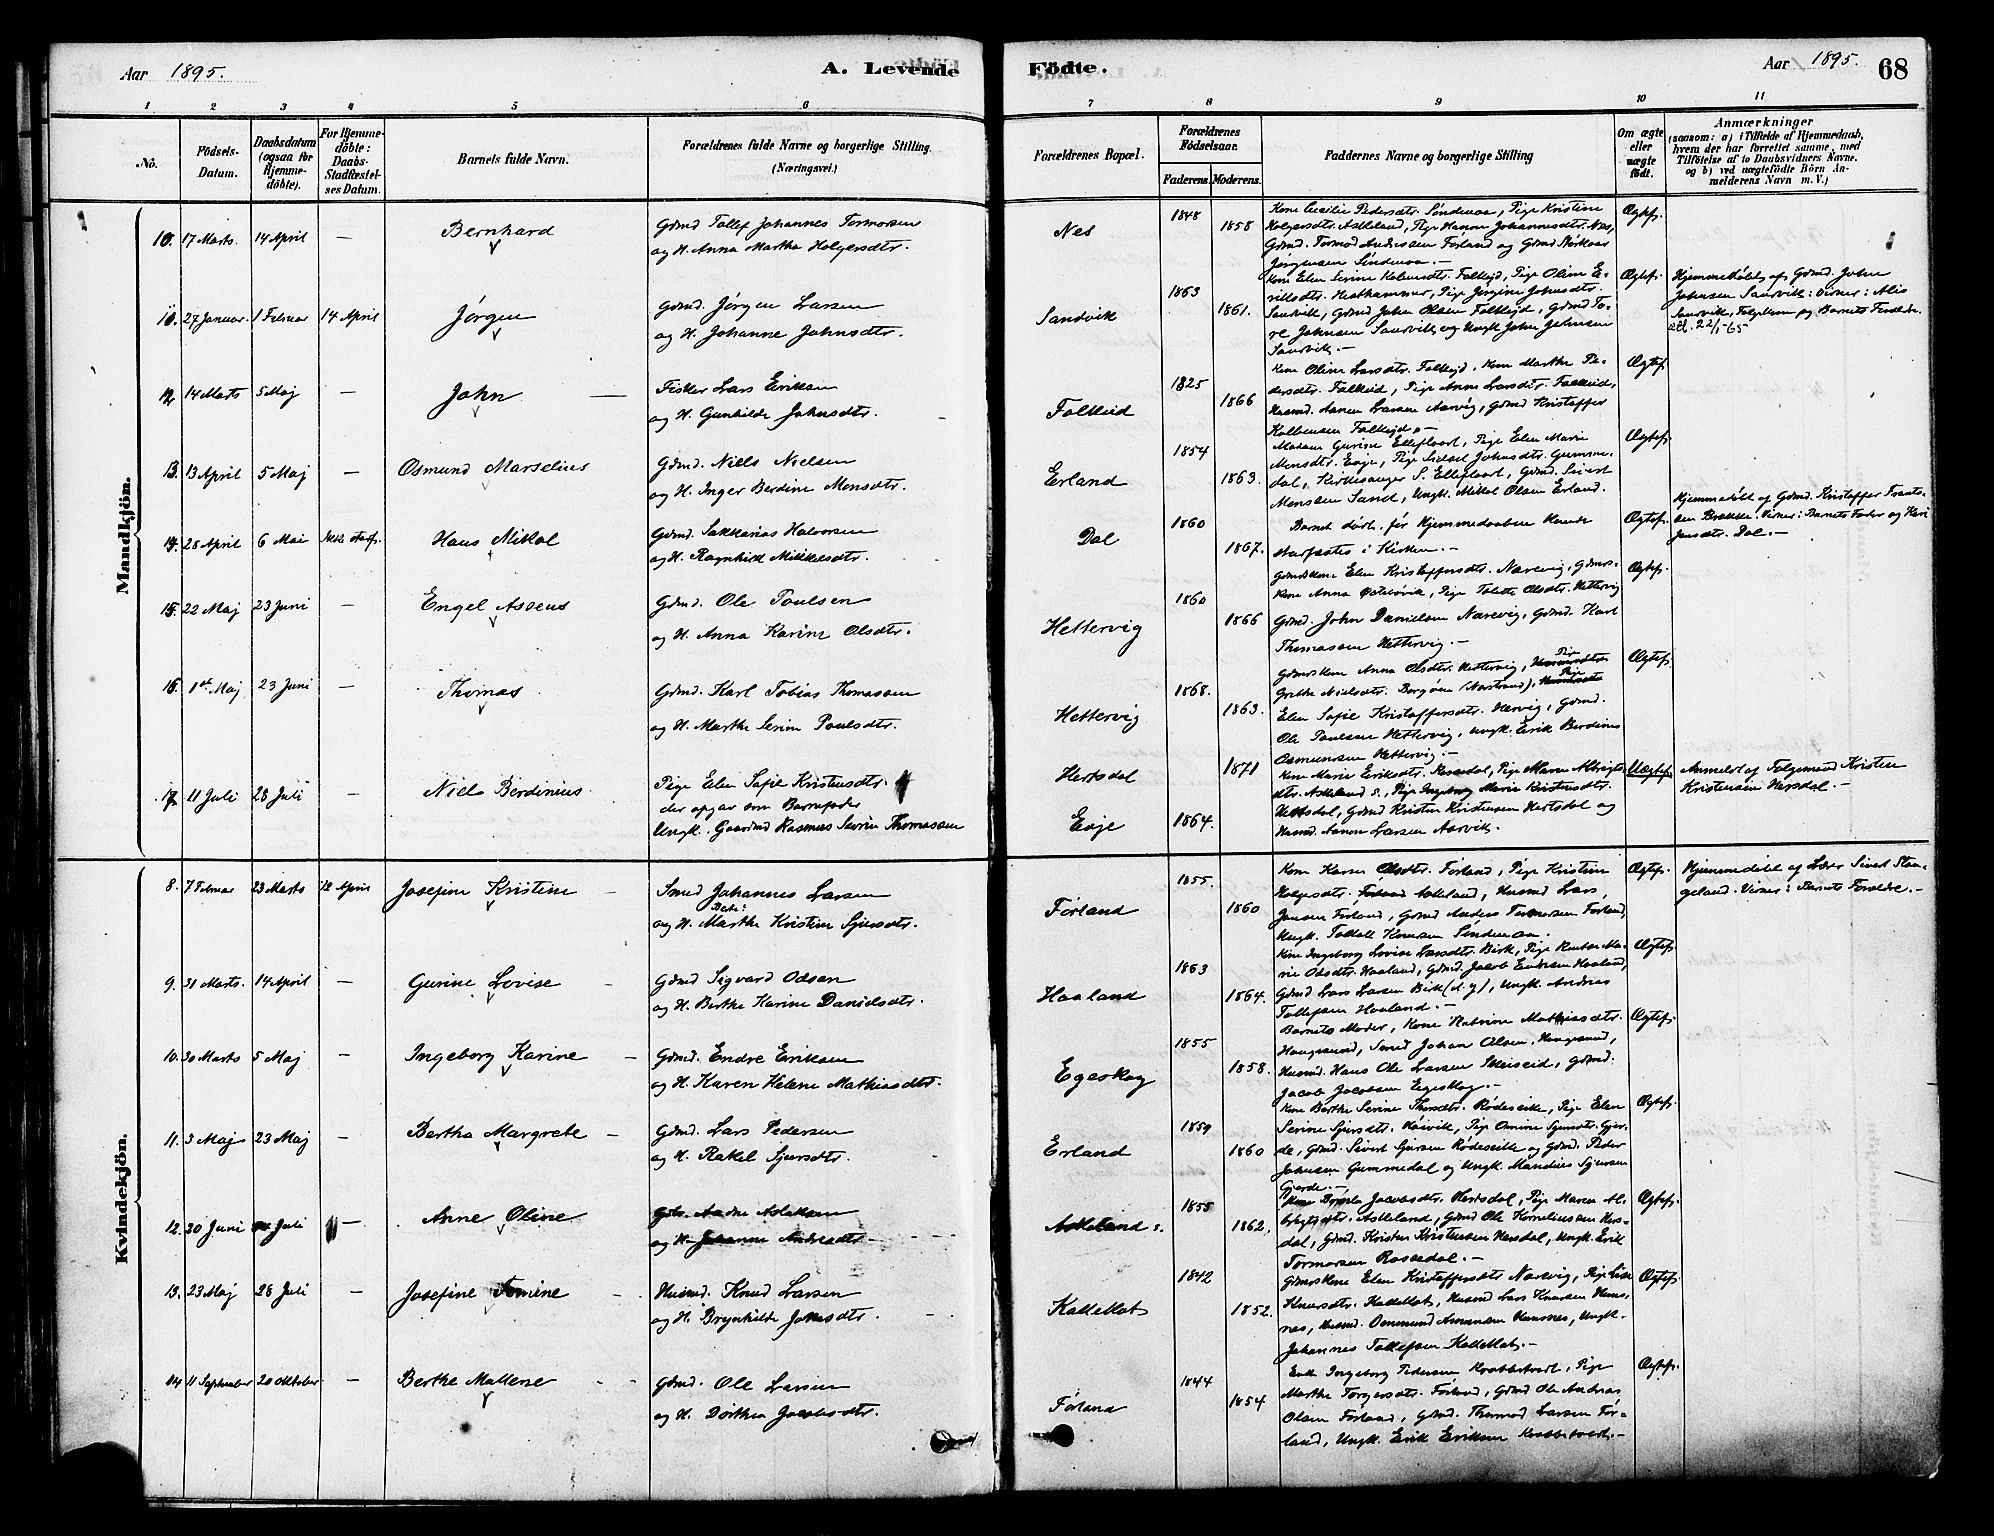 Aar 1895.
A. Levende
Födte.
Aar 1895.
68
1 2 3 4 5 6 7 8 9 10 11
No.
Födsels-
Datum.
Daabsdatum
(ogsaa for
Hjemme-
döbte).
For Hjemme-
döbte:
Daabs-
Stadfæstel-
ses Datum.
Barnets fulde Navn.
Forældrenes fulde Navne og borgerlige Stilling.
(Næringsvei.)
Forældrenes Bopæl.
Forældrenes
Födselsaar.
Faderens. Moderens.
Faddernes Navne og borgerlige Stilling
Om ægte
eller
uægte
födt.
Anmærkninger
(saasom: a) i Tilfælde af Hjemmedaab,
hvem der har forrettet samme, med
Tilföielse af to Daabsvidners Navne.
og b) ved uægtefödte Börn An-
melderens Navn m. V.)
Mandkjön.
17 Marts 14 April — Bernhard
Gdmd Tollef Johannes Tormorsen
og H. Anna Martha Holgersdtr.
Nes 1848 1858
Kone Cecilie Pedersdtr. Søndenaa, Pige Kristine
Holgersdtr. Askeland, Pige Hanna Johannesdtr. Nes,
Gdmd. Tormod Andersen Førland og Gdmd
Jørgensen Søndenaa.—
Ægtef.
27 Januar 1 Februar 14 April Jørgen
Gdmd. Jørgen Larsen
og H. Johanne Johnsdtr.
Sandvik 1863 1861.
Kone Elen Serine Kolbensdtr. Falkeid, Pige Oline E-
Hesthammer, Pige Jørgine Johnsdtr.
Gdmd John Olsen Falkeid, Gdmd To-
re Johnsen Sandvik og Ungk John Johnsen
Sandvik.—
Ægtef.
Hjemmedøbt af Gdmd. John
Johnsen Sandvik: Vidner:
og Barnets Forældre.
22/1-65
14 Marts 5 Maj — John
Fisker Lars Eriksen
og H. Gunhilde Johnsdtr.
Falkeid 1825 1866
Kone Oline Larsdtr. Falkeid, Kone Marthe Pe-
dersdtr. Falkeid, Pige Anne Larsdtr. Falkeid,
Husmd. Aanen Larsen Aarvig, Gdmd Kristoffer
Kolbensen Falkeid.—
Ægtef
13. 13 April 5 Maj — Osmund Marselius
Gdmd. Niels Nielsen
og H. Inger Berdine Monsdtr.
Erland 1854 1863.
Madam Gurine Elleflaat, Pige Elen Marie
Monsdtr. Eoje, Pige Sidsel Johnsdtr. Gumme-
dal, Kirkesanger S. Elleflaat, Gdmd. Seivert
Monsen Sand, Ungk. Mikal Olsen Erland.
Ægtef.
14. 28 April 6 Mai Hans Mikal
Gdmd. Sakkarias Halvorsen
og H. Ragnhild Mikkelsdtr.
Dal 1860 1867.
Barnet døde før Hjemmedaaben kunde
stadfæstes i Kirken.—
Ægtef.
Hjemmedøbt af Gdmd. Kristoffer
Brekke. Vidner: Barnets Fader og Kari
Jensdtr. Dal.—
15. 22 Maj 23 Juni — Engel Asseus
Gdmd. Ole Poulsen
og H. Anna Karine Olsdtr.
Hettervig 1860 1866
Gdmdskone Elen Kristoffersdtr. Narevig, Gdmds-
Kone Anna Østebøvik, Pige Tolette Olsdtr. Hettervig
Gdmd. John Danielsen Narevig, Gdmd. Karl
Thomassen Hettervig.—
Ægtef.
16. 1st Maj 23 Juni — Thomas
Gdmd. Karl Tobias Thomassen
og H. Marthe Serine Poulsdtr.
Hettervig 1868. 1863.
Gdmdskone Anna Olsdtr. Hettervig, Pige
Grethe Nielsdtr. Borgøen (Nastrand), Pige
Elen Sofie Kristoffersdtr. Hervig, Gdmd.
Ole Poulsen Hettervig, Ungk. Erik Berdines
Osmundsen Hettervig.—
Ægtef.
17. 11 Juli 28 Juli — Niels Berdinius
Pige Elen Sofie Kristensdtr.
der opgav som Barnefader
Ungk. Gaardmd Rasmus Severin Thomassen
Hertsdal
Eoje 1864. 1871
Kone Marie Eriksdtr. Rossedal, Pige Maren Albregts-
dtr. Askeland s., Pige Ingeborg Marie Kristensdtr.
Hertsdal, Gdmd Kristen Kristensen Hertsdal og
Husmd. Aanen Larsen Aarvik.
Uægtef.
Anmeldt af Følgemand Kristen
Kristensen Hersdal.—
Kvindekjön.
8. 7 Februar 23 Marts 12 April Josefine Kristine
Smed Johannes Larsen
og H. Marthe Kristine Sjursdtr.
Førland 1855. 1860
Kone Karen Olsdtr. Førland, Pige Kristine
Holgersdtr. Askeland, Husmd Lars
Jansen Førland, Gdmd Anders Tormorsen Førland,
Ungk. Tollak Knutsen Søndenaa.
Ægtef.
Hjemmedøbt af Lærer Sivert Stan-
geland. Vidner: Barnets Forældre.—
9. 31 Marts. 14 April — Gurine Lovise
Gdmd Sigvard Odsen
og H. Berthe Karine Danielsdtr.
Haaland 1863 1864.
Kone Ingeborg Lovise Larsdtr. Birk, Pige Ma-
rie Odsdtr. Haaland, Gdmd. Jacob Eriksen Haaland,
Gdmd Lars Larsen Birk (d.y.), Ungk. Andreas
Tollefsen Haaland.—
Ægtef.
10. 30 Marts 5 Maj — Ingeborg Karine
Gdmd. Endre Eriksen
og H. Karen Helene Mathiasdtr.
Egeskog 1855 1858.
Barnets Moder, Kone Katrine Mathiasdtr.
Haugesund, Smed Johan Olsen Haugesund,
Husmd. Hans Ole Larsen Skeiseid, Gdmd.
Jacob Jacobsen Egeskog.—
Ægtef.
11. 3 Maj 23 Maj — Bertha Margrete
Gdmd. Lars Pedersen
og H. Rakel Sjursdtr.
Erland 1859 1860
Kone Berthe Serine Thorsdtr. Rødeseike, Pige Elen
Serine Sjursdtr. Høivik, Pige Omine Sjursdtr. Gjer-
de, Gdmd. Sivert Sjursen Rødeseike og Gdmd. Peder
Johnsen Gummedal og Ungk. Mandius Sjursen
Gjerde.—
Ægtef.
12. 30 Juni Juli — Anne Oline
og H. Johanne Andreasdtr.
Askeland s. 1855 1862.
Kone Jacobsdtr. Hertsdal, Pige Maren Al-
bregtsdtr. Askeland, Gdmd Ole Korneliussen Hers-
dal, Gdmd. Kristen Kristensen Hersdal, Ungk. Erik
Tormorsen Rossedal.—
Ægtef.
13. 23 Maj 28 Juli — Josefine Tomine
Husmd. Knud Larsen
og H. Brynhilde Johnsdtr.
Kalleklot 1842 1852.
Gdmdskone Elen Kristoffersdtr Narevig, Pige Lise
Knutsdtr. Kalleklot, Husmd Lars Knutsen
Husmd. Osmund Ungk.
Johannes Tollefsen Kalleklot.—
Ægtef.
14 11 September 20 Oktober — Berthe Mallene
Gdmd. Ole Larsen
og H. Dorthea Jacobsdtr.
Førland 1844 1854
Enke Ingeborg Pedersen Krabbetveit, Pige
Marthe Torgersdtr. Førland, Gdmd Ole Andreas
Olsen Førland, Gdmd. Thormod Larsen Før-
land, Ungk. Erik Eriksen Krabbetveit.—
Ægtef.